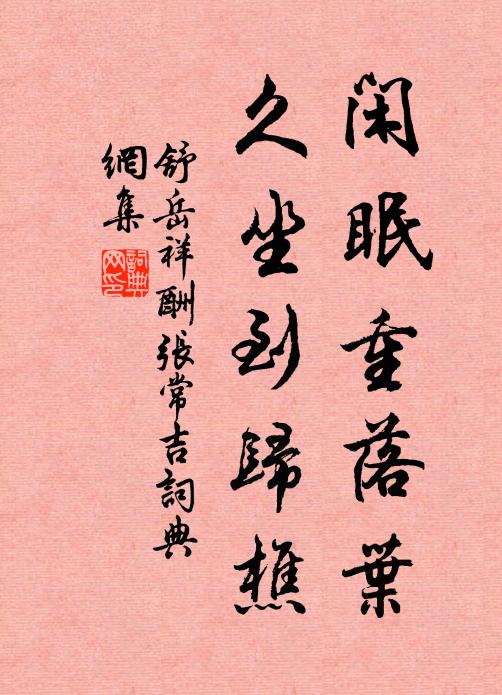 閑眠重落葉
久坐到歸樵
舒岳祥酬張常吉詞典
網集
詞典
网印